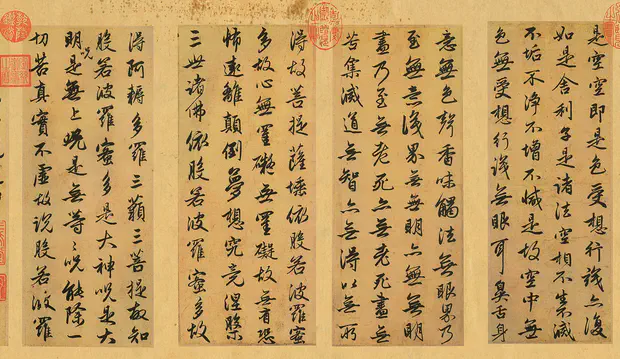 是空空即是色受想行識亦復
如是舍利子是諸法空相不生不滅
不垢不淨不增不減是故空中無
色無受想行識無眼耳鼻舌身
意無色聲香味觸法無眼界乃
至無意識界無無明亦無無明
盡乃至無老死亦無老死盡無
苦集滅道無智亦無得以無所
得故菩提薩埵依般若波羅蜜
多故心無罣礙無罣礙故無有恐
怖遠離顛倒夢想究竟涅槃
三世諸佛依般若波羅蜜多故
得阿耨多羅三藐三菩提故知
般若波羅蜜多是大神呪是大
明呪是無上呪是無等〻呪能除一
切苦真實不虛故說般若波羅